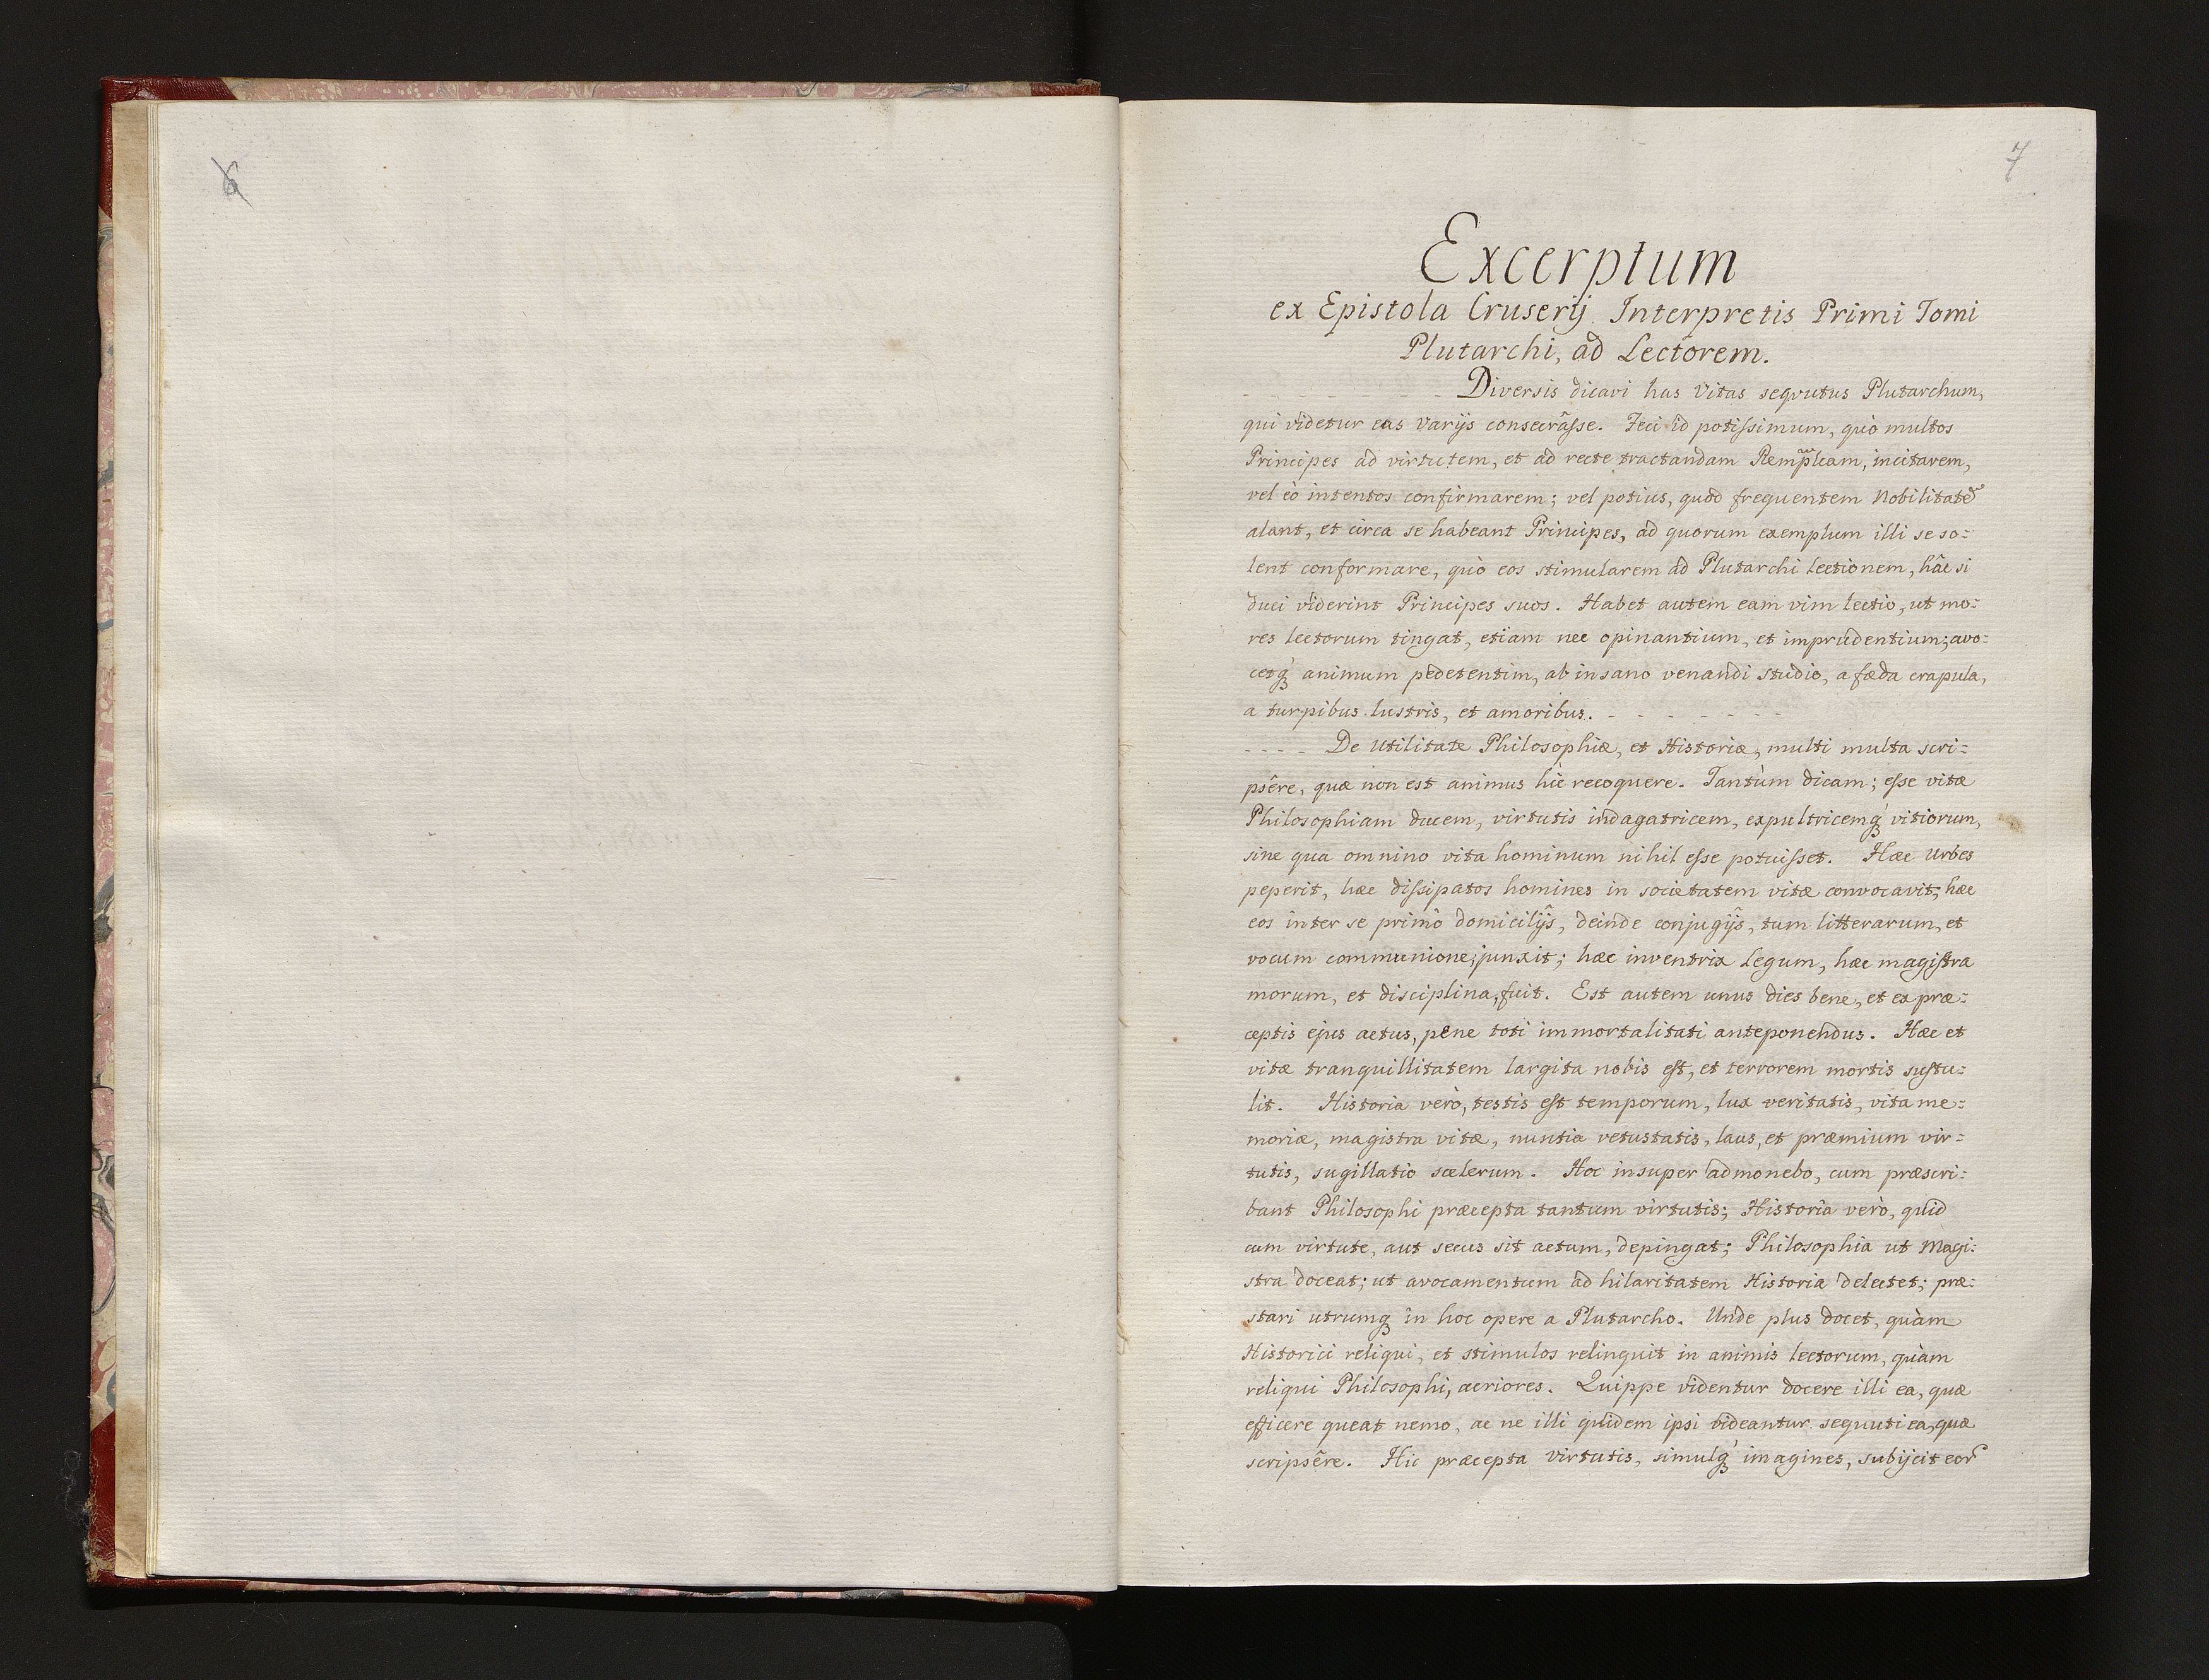 6
7
Excerptum
ex Epistola Cruserij Interpretis Primi Tomi
Plutarchi, ad Lectorem.
- - - - - - - - Diversis dicavi has Vitas seqvutus Plutarchum,
qui videtur eas Varijs consecrâsse. Feci id potissimum, quò multos
Principes ad virtutem, et ad recte tractandam Remp̃lcam, incitarem,
vel eò intentos confirmarem; vel potius, quòd frequentem Nobilitatẽ
alant, et circa se habeant Principes, ad quorum exemplum illi se so=
lent conformare, quò eos stimularem ad Plutarchi lectionem, hâc si
duci viderint Principes suos. Habet autem eam vim lectio, ut mo=
res lectorum tingat, etiam nec opinantium, et imprudentium; avo=
cetq́ animum pedetentim, ab insano venandi studio, a fœda crapula,
a turpibus lustris, et amoribus. - - - - - - -
- - - - De Utilitate Philosophiæ, et Historiæ, multi multa scri=
psêre, quæ non est animus hìc recoquere. Tantùm dicam; esse vitæ
Philosophiam ducem, virtutis indagatricem, expultricemq́ vitiorum,
sine qua omnino vita hominum nihil esse potuisset. Hæc Urbes
peperit, hæc dissipatos homines in societatem vitæ convocavit; hæc
eos inter se primò domicilijs, deinde conjugijs, tum litterarum, et
vocum communione, junxit; hæc inventrix Legum, hæc magistra
morum, et disciplina, fuit. Est autem unus dies bene, et ex præ=
ceptis ejus actus, pene toti immortalitati anteponendus. Hæc et
vitæ tranquillitatem largita nobis est, et terrorem mortis sustu=
lit. Historia verò, testis est temporum, lux veritatis, vita me=
moriæ, magistra vitæ, nuntia vetustatis, laus, et præmium vir=
tutis, sugillatio scelerum. Hoc insuper admonebo, cum præscri=
bant Philosophi præcepta tantum virtutis; Historia verò, quid
cum virtute, aut secus sit actum, depingat; Philosophia ut Magi=
stra doceat; ut avocamentum ad hilaritatem Historia delectet; præ=
stari utrumq in hoc opere a Plutarcho. Unde plus docet, quàm
Historici reliqui, et stimulos relinquit in animis lectorum, quàm
reliqui Philosophi, acriores. Quippe videntur docere illi ea, quæ
efficere queat nemo, ac ne illi quidem ipsi videantur sequuti ea, quæ
scripsêre. Hic præcepta virtutis, simulq́ imagines, subijcit eor̃